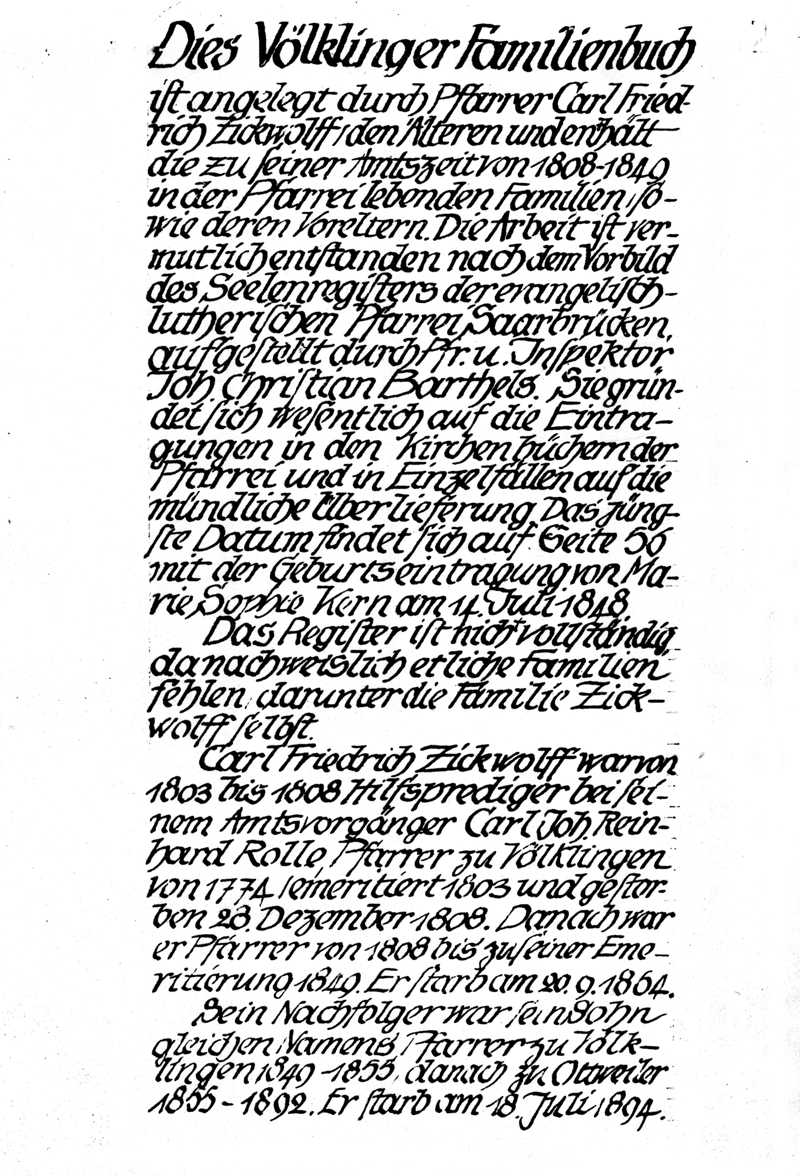 Dies Völklinger Familienbuch
ist angelegt durch Pfarrer Carl Fried-
rich Zickwolff, den Älteren und enthält
die zu seiner Amtszeit von 1808-1849
in der Pfarrei lebenden Familien, so-
wie deren Voreltern. Die Arbeit ist ver-
mutlich entstanden nach dem Vorbild
des Seelenregisters der evangelisch-
lutherischen Pfarrei Saarbrücken,
aufgestellt durch Pfr. u. Inspektor
Joh. Christian Barthels. Sie grün-
det sich wesentlich auf die Eintra-
gungen in den Kirchenbüchern der
Pfarrei und in Einzelfällen auf die
mündliche Überlieferung. Das jüng-
ste Datum findet sich auf Seite 56
mit der Geburtseintragung von Ma-
rie Sophie Kern am 14. Juli 1848.
Das Register ist nicht vollständig,
da nachweislich etliche Familien
fehlen, darunter die Familie Zick-
wolff selbst.
Carl Friedrich Zickwolff war von
1803 bis 1808 Hilfsprediger bei sei-
nem Amtsvorgänger Carl Joh. Rein-
hard Rolle, Pfarrer zu Völklingen
von 1774, emeritiert 1803 und gestor-
ben 23. Dezember 1808. Danach war
er Pfarrer von 1808 bis zu seiner Eme-
ritierung 1849. Er starb am 20. 9. 1864.
Sein Nachfolger war sein Sohn
gleichen Namens, Pfarrer zu Völk-
lingen 1849-1855, danach zu Ottweiler
1855-1892. Er starb am 18. Juli 1894.